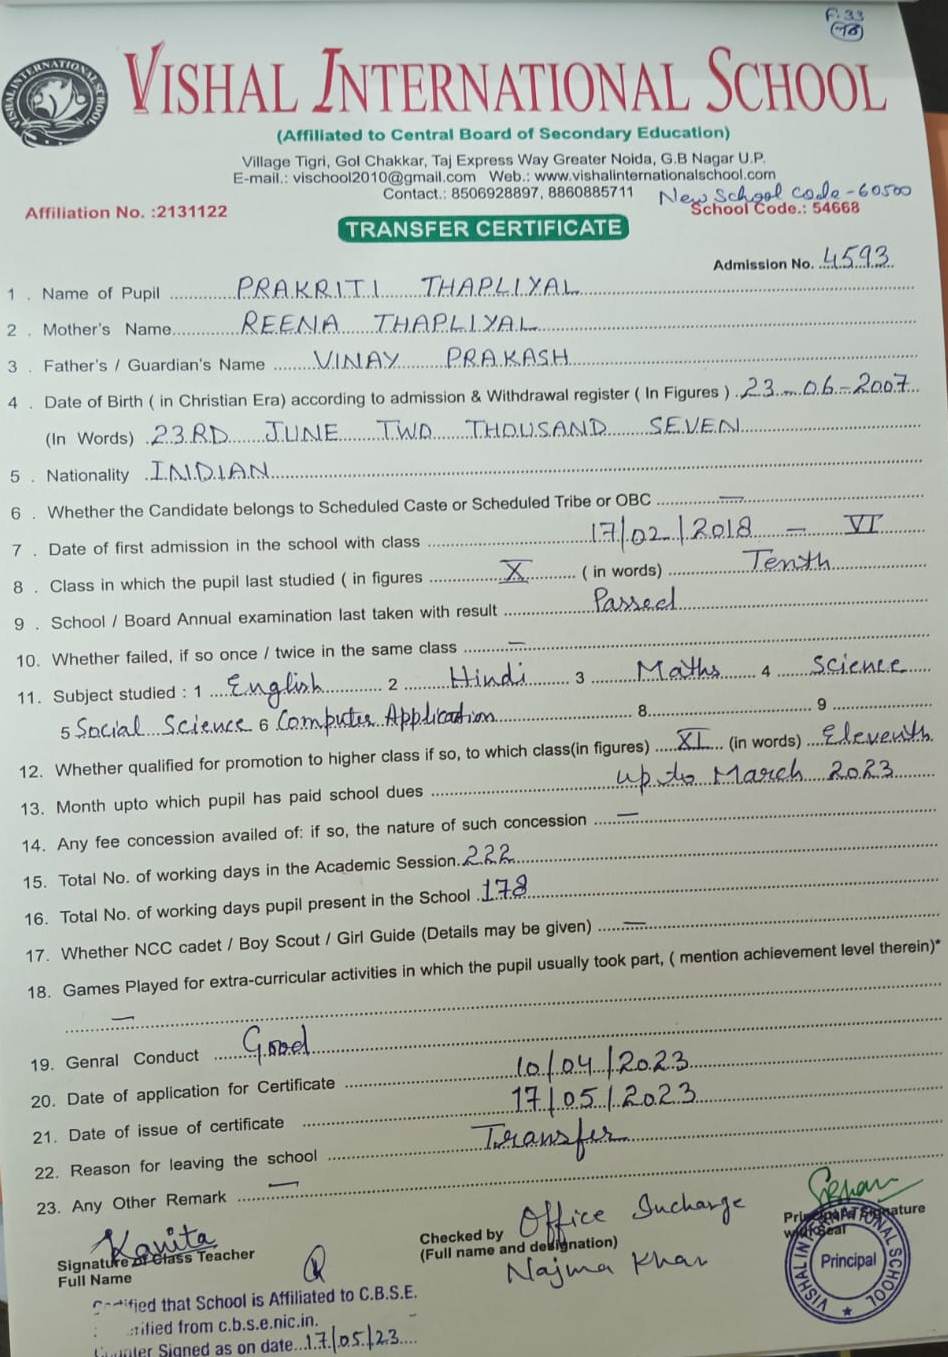 F. 33
VISHAL INTERNATIONAL SCHOOL
VISHAL INTERNATIONAL SCHOOL
(Affiliated to Central Board of Secondary Education)
Village Tigri, Gol Chakkar, Taj Express Way Greater Noida, G.B Nagar U.P.
E-mail.: vischool2010@gmail.com Web.: www.vishalinternationalschool.com
Contact.: 8506928897, 8860885711
New School Code - 60500
Affiliation No. :2131122 School Code.: 54668
TRANSFER CERTIFICATE
Admission No. 4593
1 . Name of Pupil PRAKRITI THAPLIYAL
2 . Mother's Name REENA THAPLIYAL
3 . Father's / Guardian's Name VINAY PRAKASH
4 . Date of Birth ( in Christian Era) according to admission & Withdrawal register ( In Figures ) 23-06-2007
(In Words) 23RD JUNE TWO THOUSAND SEVEN
5 . Nationality INDIAN
6 . Whether the Candidate belongs to Scheduled Caste or Scheduled Tribe or OBC —
7 . Date of first admission in the school with class 17/02/2018 - VI
8 . Class in which the pupil last studied ( in figures X ( in words) Tenth
9 . School / Board Annual examination last taken with result Passed
10. Whether failed, if so once / twice in the same class —
11. Subject studied : 1 English 2 Hindi 3 Maths 4 Science
5 Social Science 6 Computer Application 8 9
12. Whether qualified for promotion to higher class if so, to which class(in figures) XI (in words) Eleventh
13. Month upto which pupil has paid school dues up to March 2023
14. Any fee concession availed of: if so, the nature of such concession —
15. Total No. of working days in the Academic Session. 222
16. Total No. of working days pupil present in the School 178
17. Whether NCC cadet / Boy Scout / Girl Guide (Details may be given) —
18. Games Played for extra-curricular activities in which the pupil usually took part, ( mention achievement level therein)*
—
19. Genral Conduct Good
20. Date of application for Certificate 10/04/2023
21. Date of issue of certificate 17/05/2023
22. Reason for leaving the school Transfer
23. Any Other Remark —
Kavita
Signature of Class Teacher
Full Name
Checked by Office Incharge
(Full name and designation)
Najma Khan
Principal Signature
with Seal
VISHAL INTERNATIONAL SCHOOL
Principal
Certified that School is Affiliated to C.B.S.E.
from c.b.s.e.nic.in.
Counter Signed as on date 17/05/23